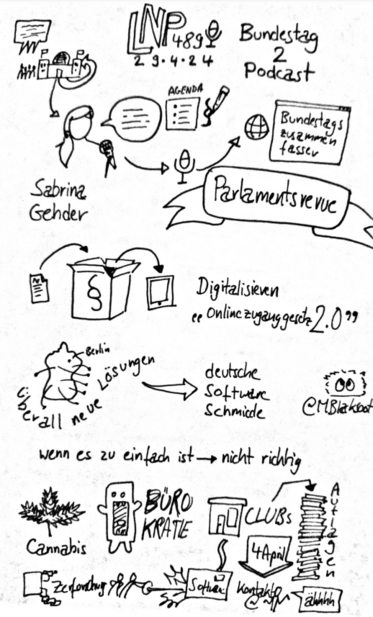 LNP
489
29.4.24
Bundestag
2
Podcast
AGENDA
Bundestags
zusammen
fasser
Sabrina
Gehder
Parlamentsrevue
§
Digitalisieren
"Onlinezuganggesetz 2.0"
Berlin
überall neue Lösungen
deutsche
Software
Schmiede
@MBlakfoot
wenn es zu einfach ist → nicht richtig
Cannabis
BÜRO
KRATIE
CLUBs
4 April
Auflagen
Zerforschung
Software
Kontakte
@
ähhhh